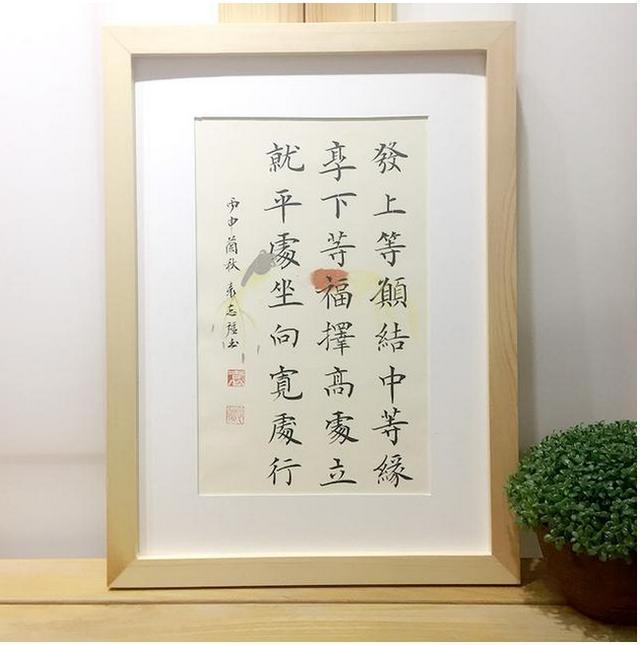 發上等願結中等緣
享下等福擇高處立
就平處坐向寬處行
丙申蘭秋